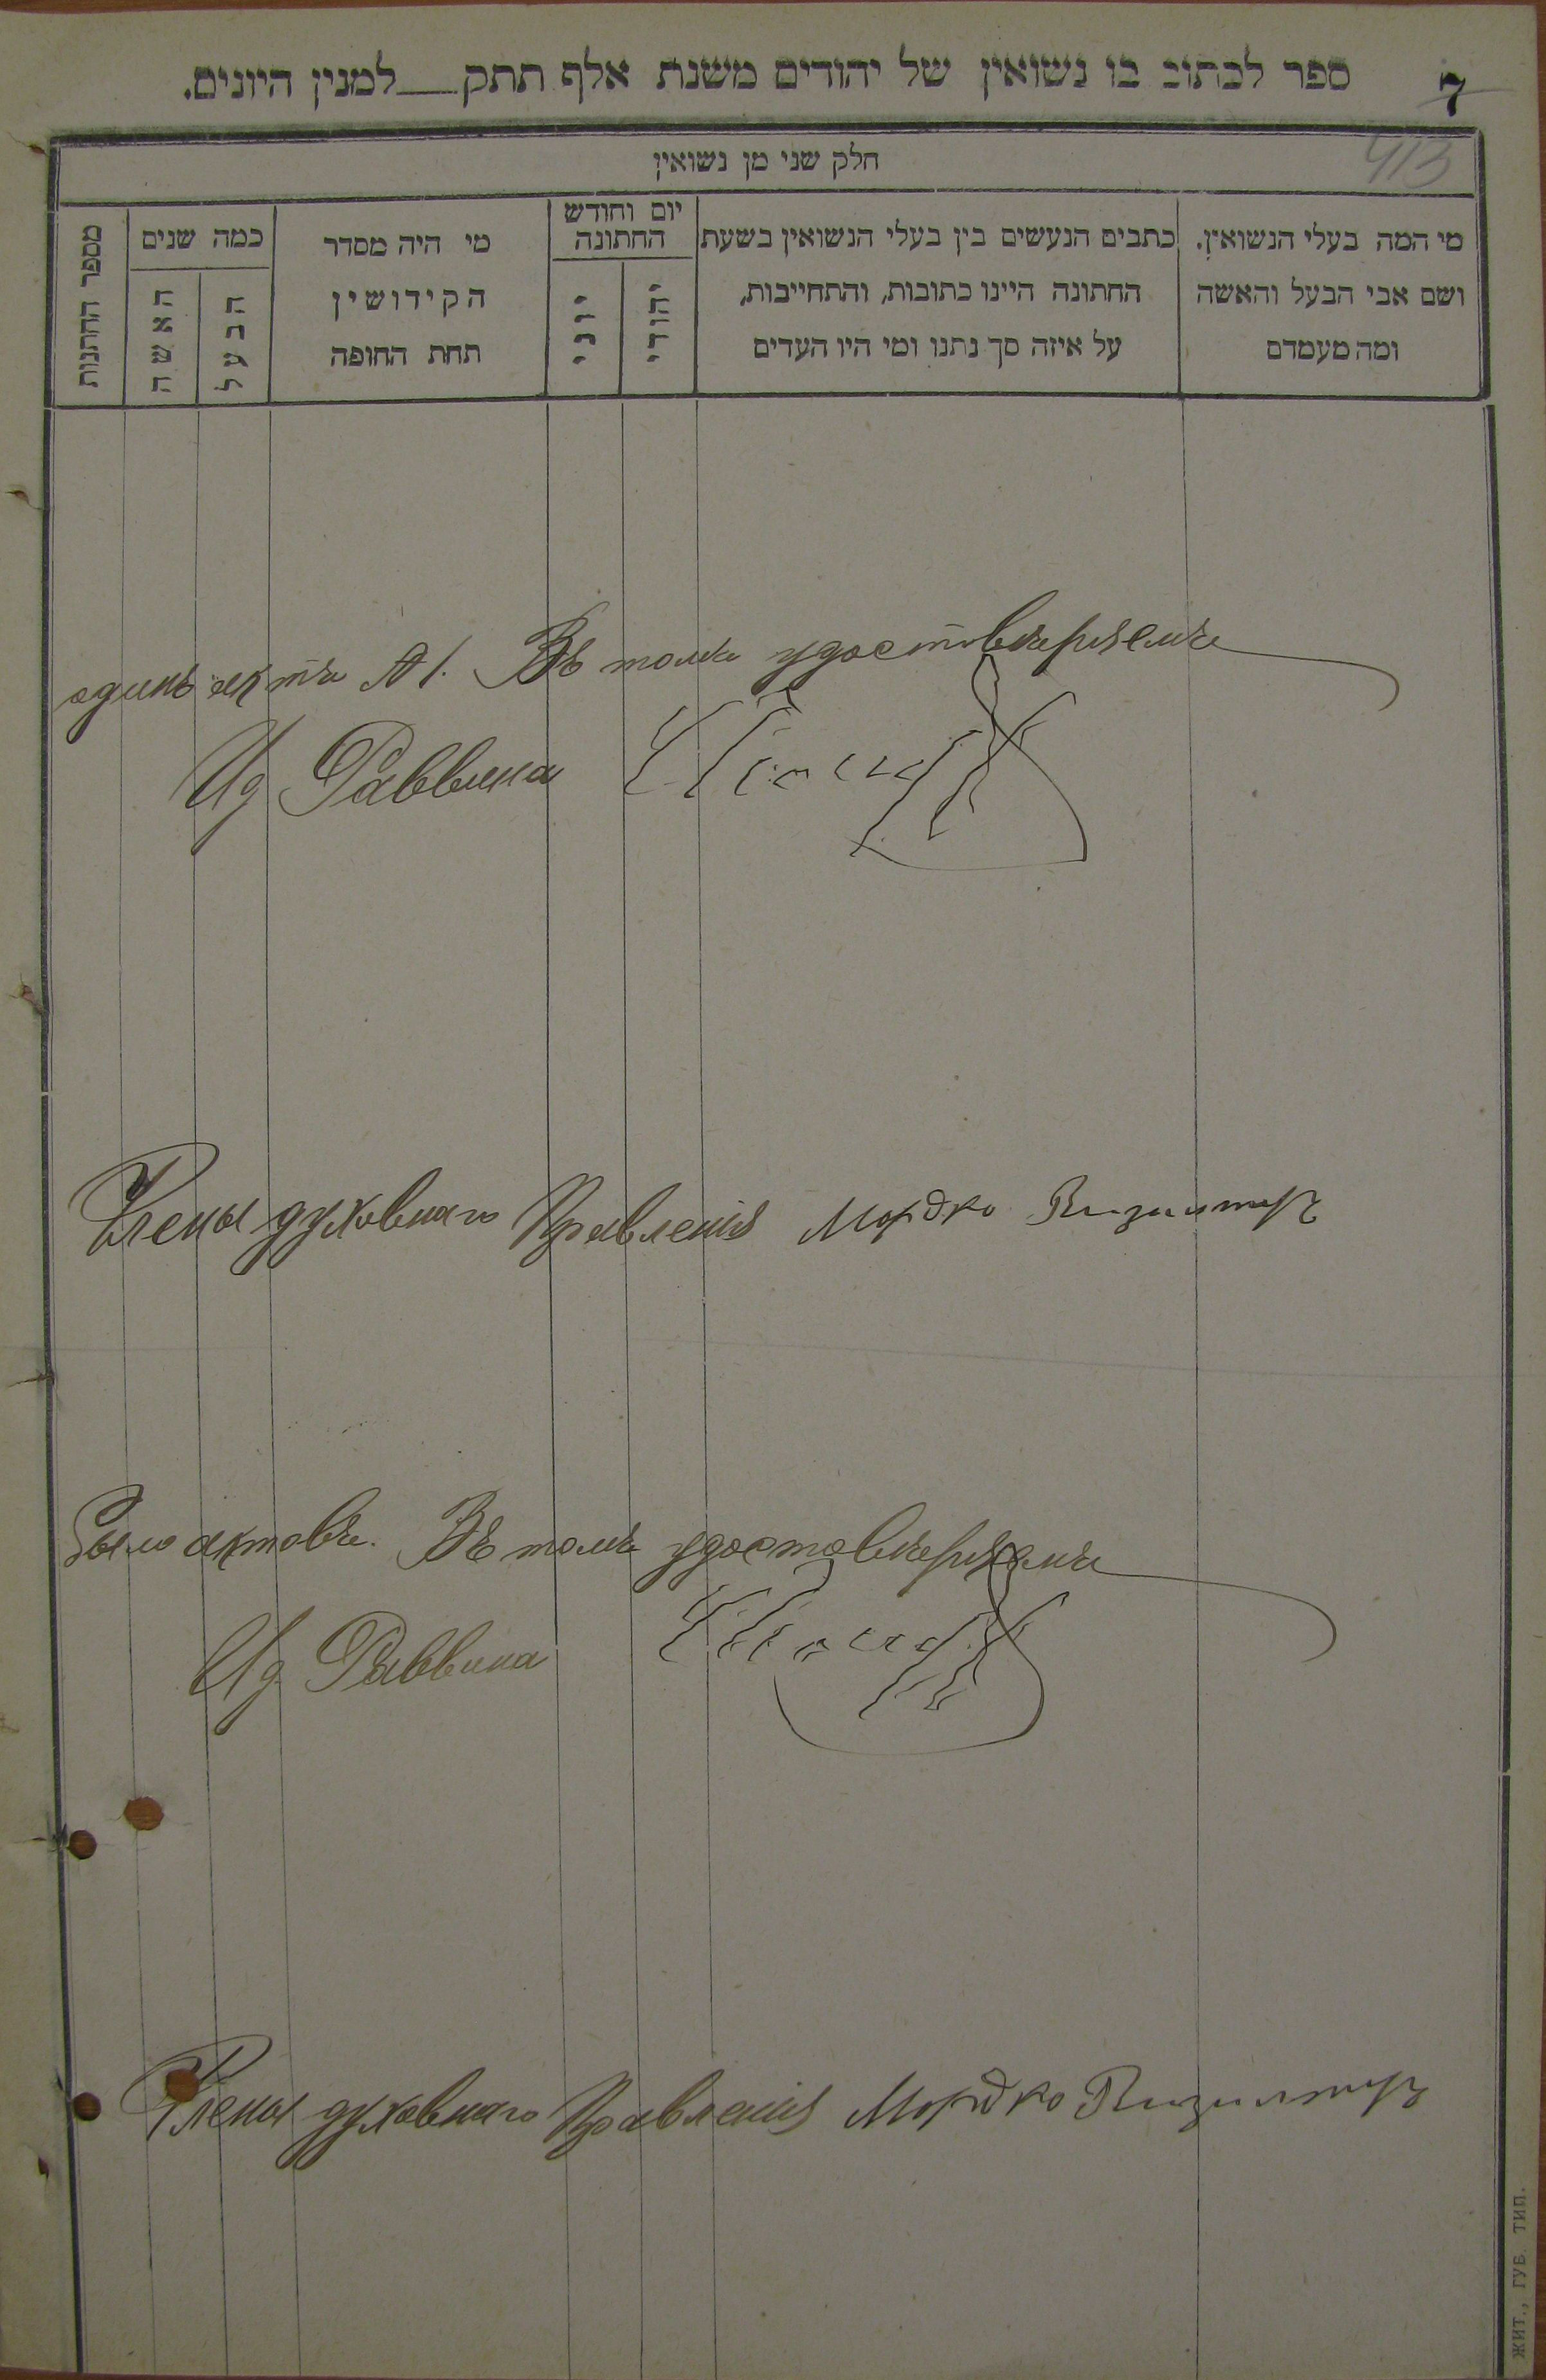 ספר לכתוב בו נשואין של יהודים משנת אלף תתק___למנין היונים.
7
413
חלק שני מן נשואין
מי המה בעלי הנשואין,
ושם אבי הבעל והאשה
ומה מעמדם
כתבים הנעשים בין בעלי הנשואין בשעת
החתונה היינו כתובות, והתחייבות,
על איזה סך נתנו ומי היו העדים
יום וחודש
החתונה
יהודי
יוני
מי היה מסדר
הקידושין
תחת החופה
כמה שנים
הבעל
האשה
מספר החתנות
одинъ актъ №1. Въ томъ удостовѣряемъ
Ид Раввина
Члены духовнаго Правленія Мордко
было актовъ. Въ томъ удостовѣряемъ
Ид. Раввина
Члены духовнаго Правленія Мордко
ЖИТ., ГУБ. ТИП.